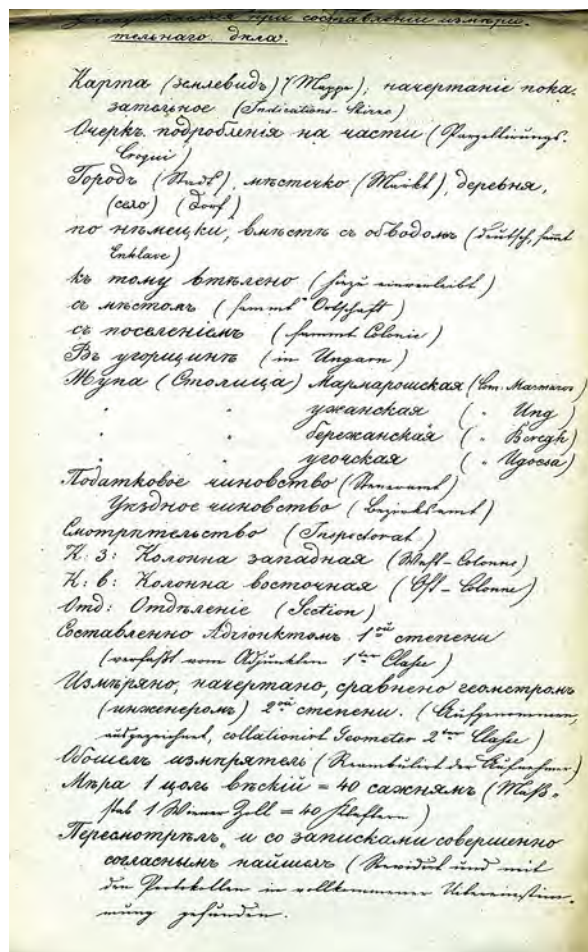 при составленіи измѣри-
тельнаго дѣла.
Карта (землевидъ) (Mappe); начертаніе пока-
зательное (Indications-Skizze)
Очеркъ подробленія на части (Parzellirungs-
Croqui)
Городъ (Stadt), мѣстечко (Markt), деревня,
(село) (Dorf)
по нѣмецки, вмѣстѣ съ обводомъ (deutsch, sammt
Enklave)
къ тому втѣлено (hiezu einverleibt)
съ мѣстомъ (sammt Ortschaft)
съ поселеніемъ (sammt Colonie)
Въ угорщинѣ (in Ungarn)
Жупа (Столица) Мармарошская (Com. Marmaros)
" " ужанская ( " Ung)
" " бережанская ( " Beregh)
" " угочская ( " Ugocsa)
Податковое чиновство (Steueramt)
Уѣздное чиновство (Bezirksamt)
Смотрительство (Inspectorat)
К: З: Колонна западная (West-Colonne)
К: В: Колонна восточная (Ost-Colonne)
Отд: Отдѣленіе (Section)
Составленно Адъюнктомъ 1ой степени
(verfaßt vom Adjunkten 1ter Classe)
Измѣряно, начертано, сравнено геометромъ
(инженеромъ) 2ой степени. (Aufgenommen,
aufgezeichnet, collationirt Geometer 2ter Classe)
Обошелъ измѣритель (Reambulirt der Aufnehmer)
Мѣра 1 цоль вѣскій = 40 сажнямъ (Maß-
stab 1 Wiener Zoll = 40 Klaftern)
Пересмотрѣлъ и со записками совершенно
согласнымъ найшелъ (Revidirt und mit
den Protokollen in vollkommener Uebereinstim-
mung gefunden.